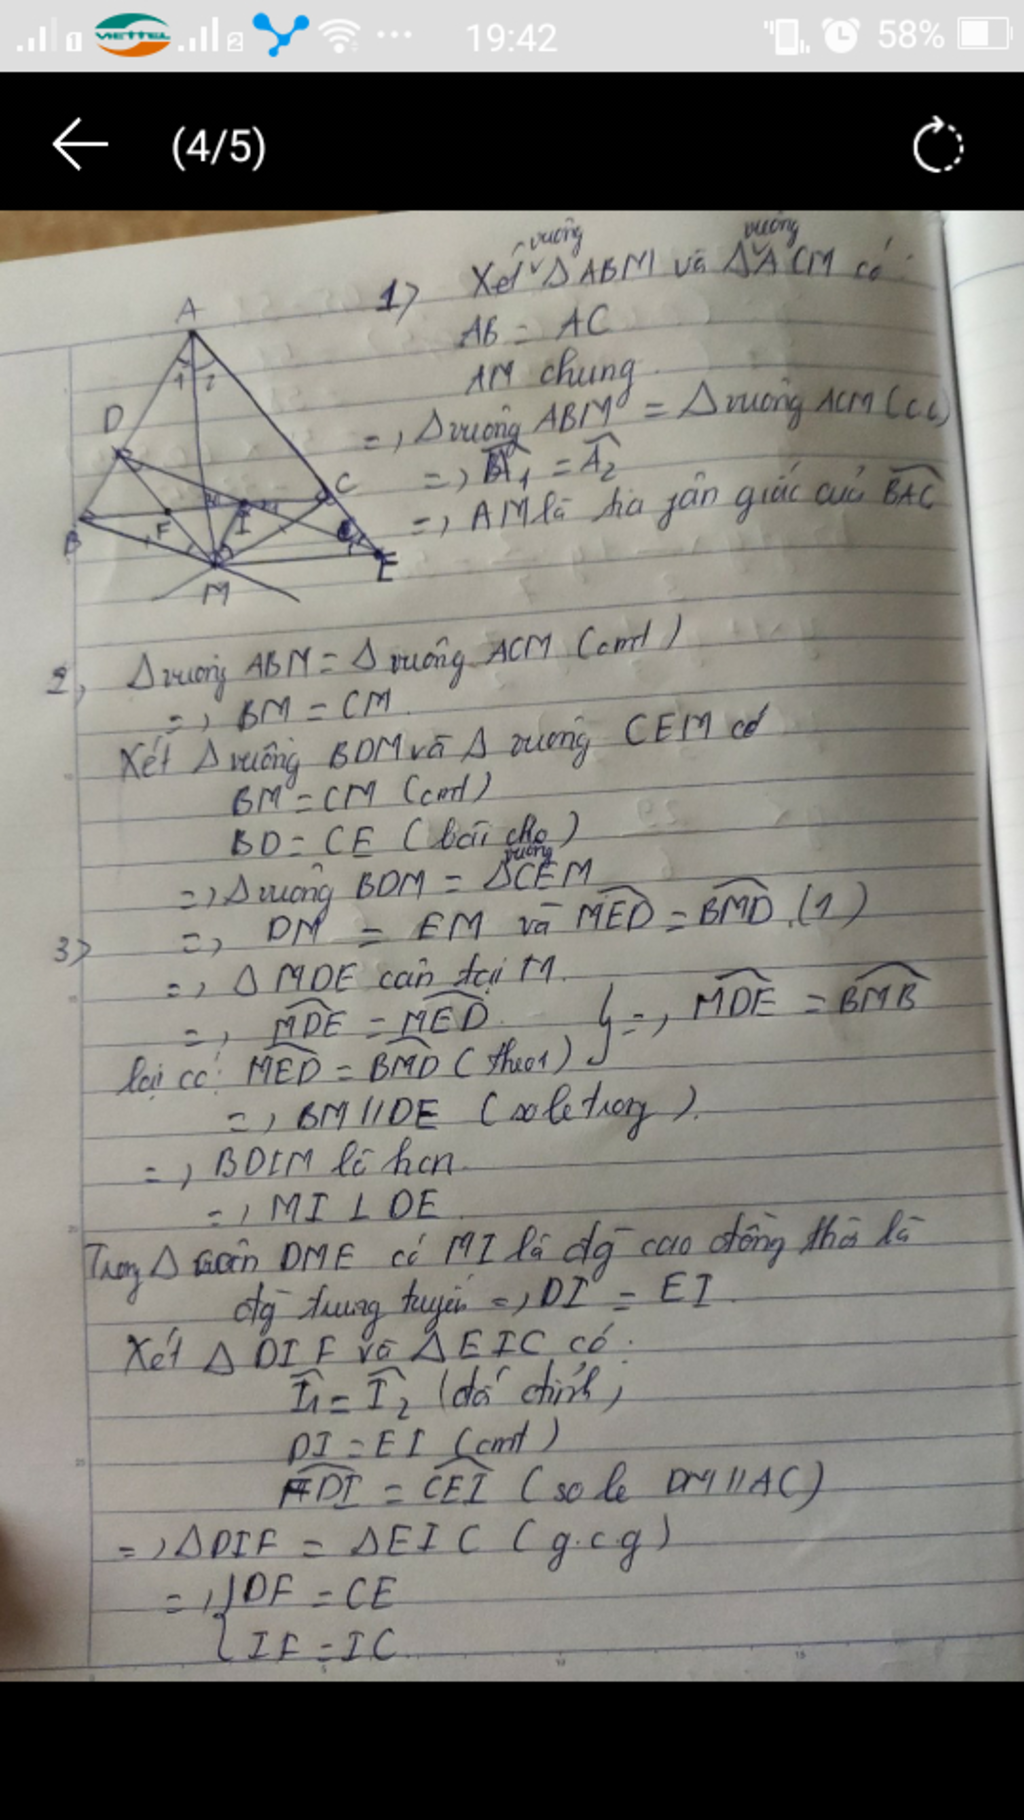 1 VIETTEL 2 ... 19:42 58%
(4/5)
1> Xét Δ vuông ABM và Δ vuông ACM có :
AB = AC
AM chung
=> Δ vuông ABM = Δ vuông ACM (c.c)
=> A1 = A2
=> AM là tia fân giác của BAC
A
1 2
D
B
F
I
C
E
M
2, Δ vuông ABM = Δ vuông ACM (cmt)
=> BM = CM
Xét Δ vuông BDM và Δ vuông CEM có
BM = CM (cmt)
BD = CE (bài cho)
=> Δ vuông BDM = Δ vuông CEM
=> DM = EM và MED = BMD (1)
3> => Δ MDE cân tại M.
=> MDE = MED } => MDE = BMB
lại có MED = BMD (theo 1)
=> BM // DE (so le trong).
=> BDIM là hcn
=> MI ⊥ DE
Trong Δ cân DME có MI là đg cao đồng thời là
đg trung tuyến => DI = EI
Xét Δ DIF và Δ EIC có :
I1 = I2 (đối đỉnh)
DI = EI (cmt)
FDI = CEI (so le DM // AC)
=> Δ DIF = Δ EIC (g.c.g)
=> { DF = CE
IF = IC